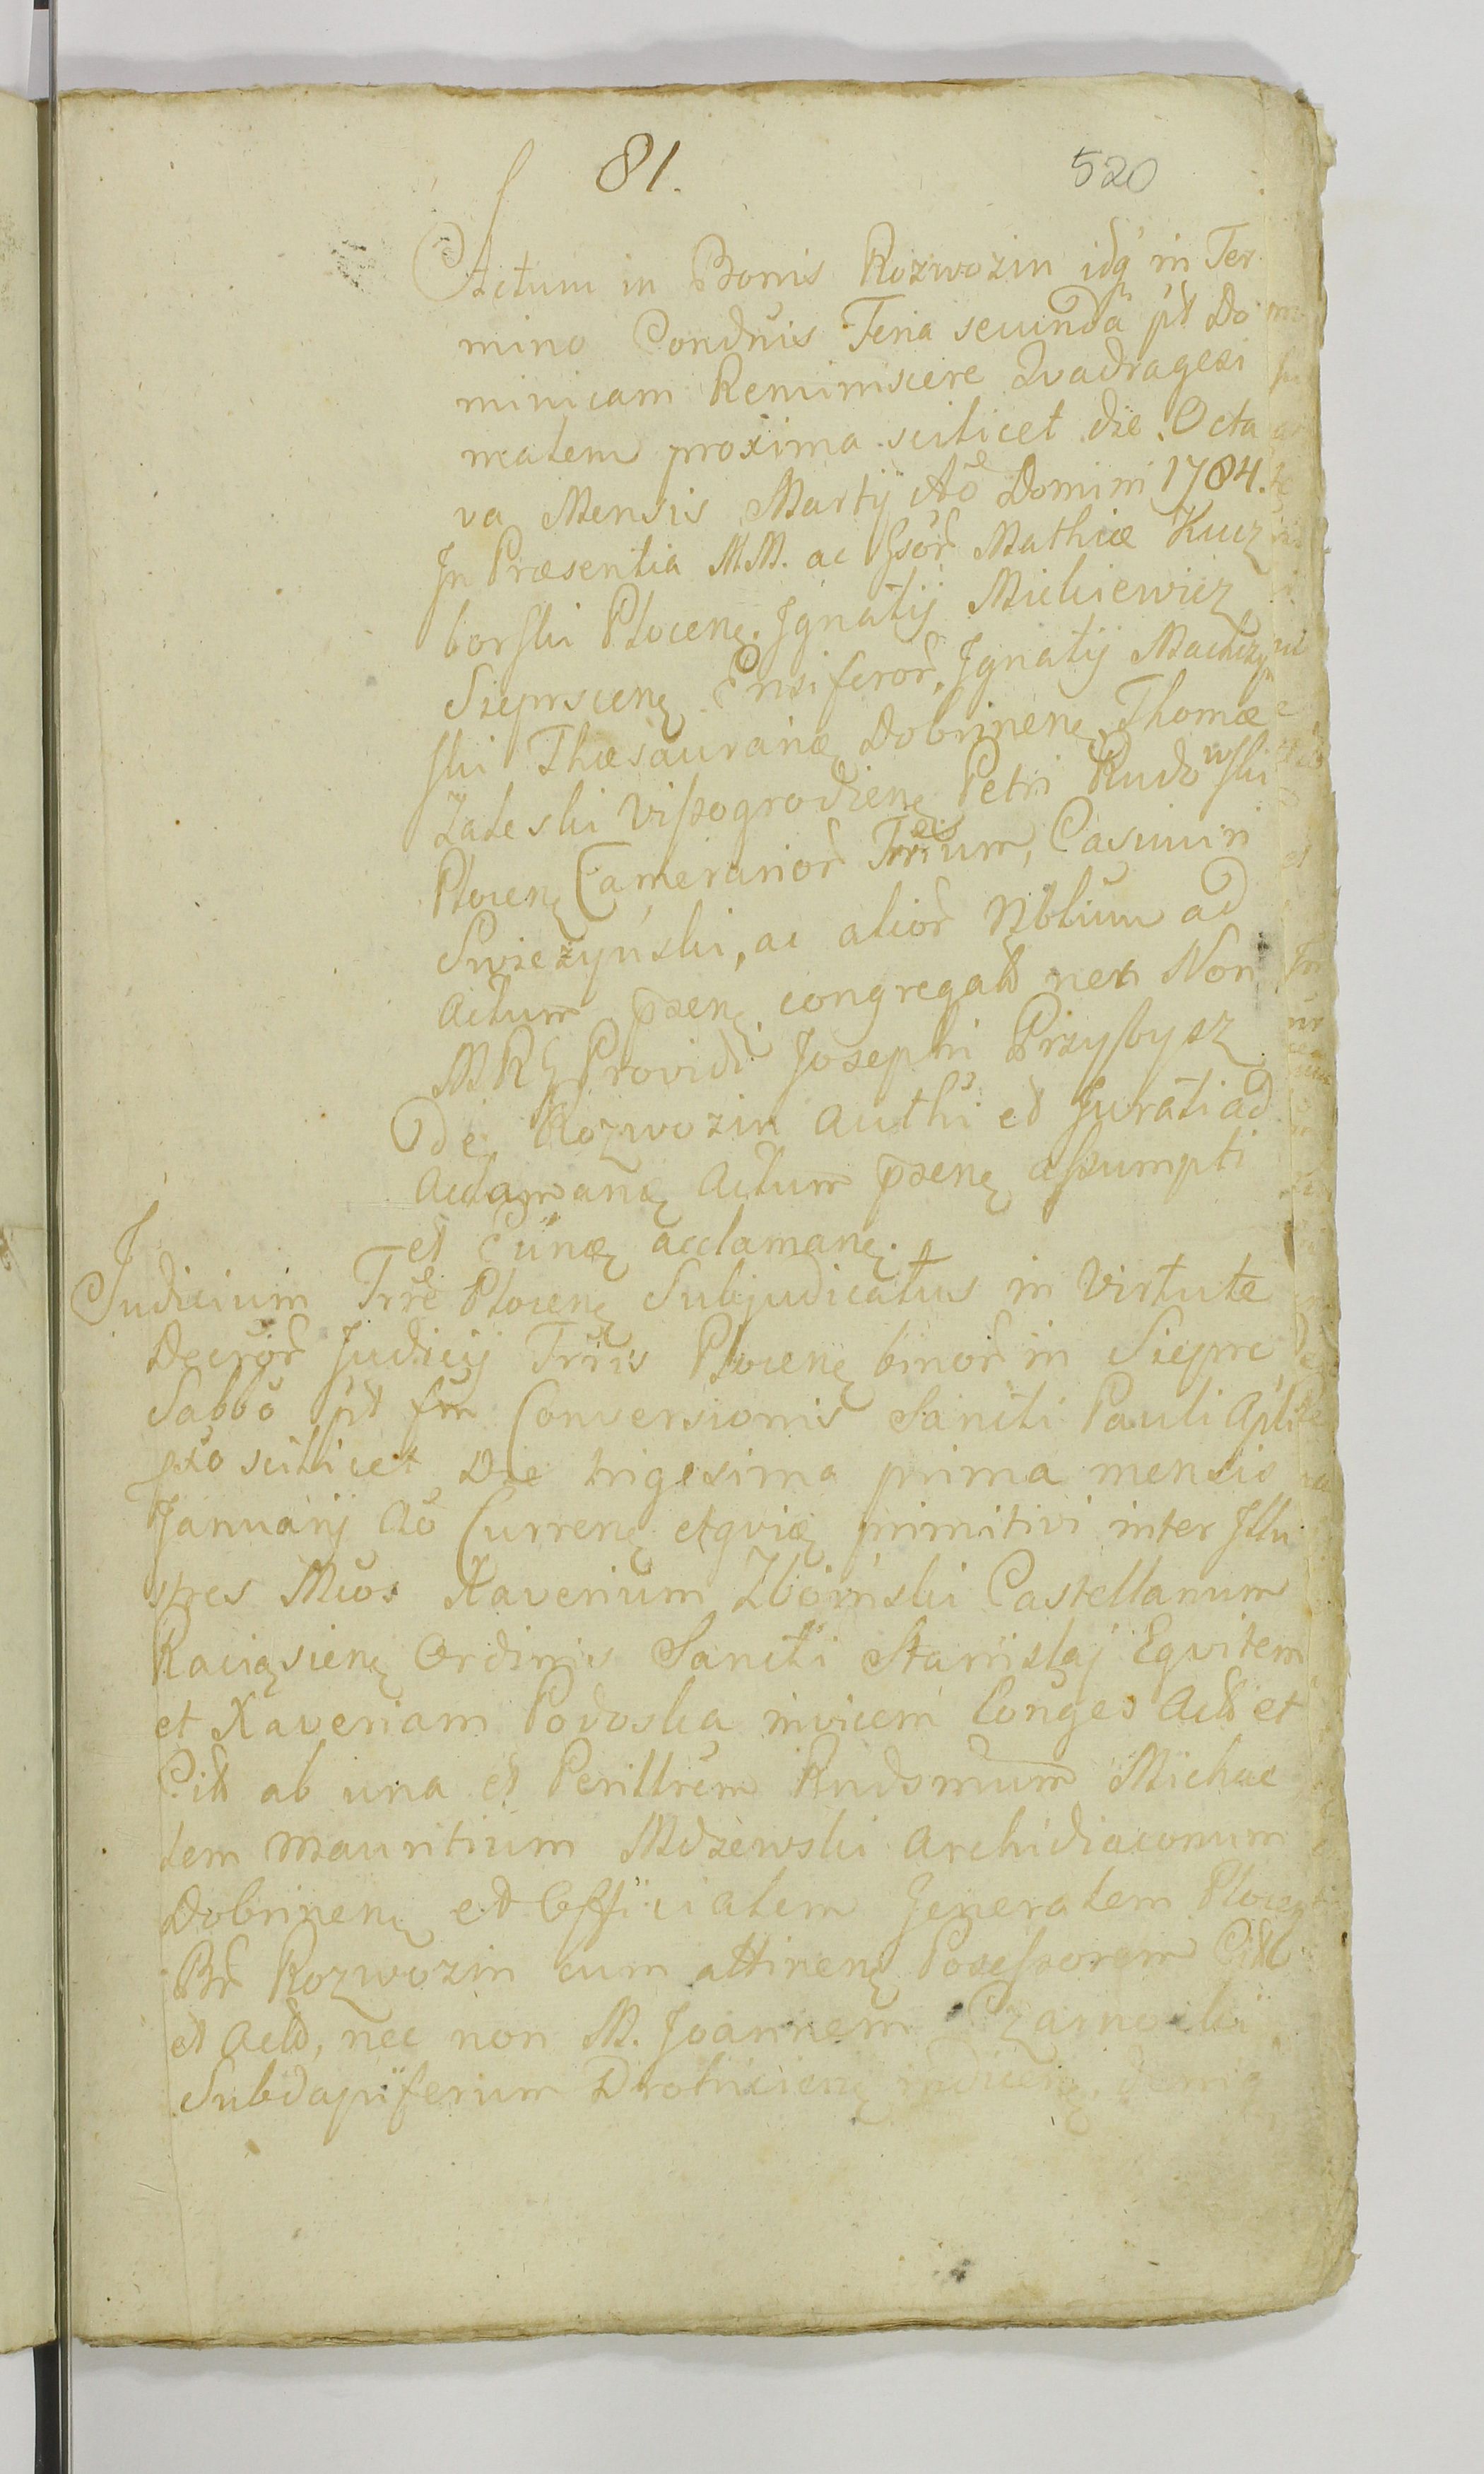 81.
520
Actum in Bonis Rozwozin idq in Ter
mino Condnis Feria secunda pt Do
minicam Reminiscere Quadragesi
malem proxima scilicet die Octa
va Mensis Martij Ao Domini 1784.
In Præsentia MM. ac Gsor Mathiæ Kucz
borski Plocenę. Ignatij Mickiewicz
Sieprscenę Ensiferor, Ignatij Machczyn
ski Thæsaurarię Dobrinenę, Thomæ
Zaleski Vissogrodienę Petri Rudowski
Plocenę Camerarior Trrium, Casimiri
Swieżyński, ac alior Nblium ad
Actum pzenę congregatt nec Non
MRS Providi Josephi Przybysz
de Rozwozin authi et Jurati ad
acclamanę Actum pzenę assumpti
et Eunę acclamanę.
Judicium Trre Plocenę Subjudicatus in Virtute
Decror Judicij Trris Plocenę binor in Sieprc
Sabbo pt fm Conversionis Sancti Pauli Apli
pxo scilicet Die trigesima prima mensis
Januarij Ao Currenę etqvię primitivi inter Illu
stres Mcos Xaverium Zboiński Castellanum
Raciąsienę Ordinis Sancti Stanislaj Eqvitem
et Xaveriam Podoska invicem Conges Actt et
Citt ab una et Perillrem Rndsmum Michae
lem Mauritium Mdzewski Archidiaconum
Dobrinenę et Officialem Generalem Plocenę
Br Rozwozin cum attinenę Possessorem Citt
et Actt, nec non M. Joannem Czarnocki
Subdapiferum Drohicienę